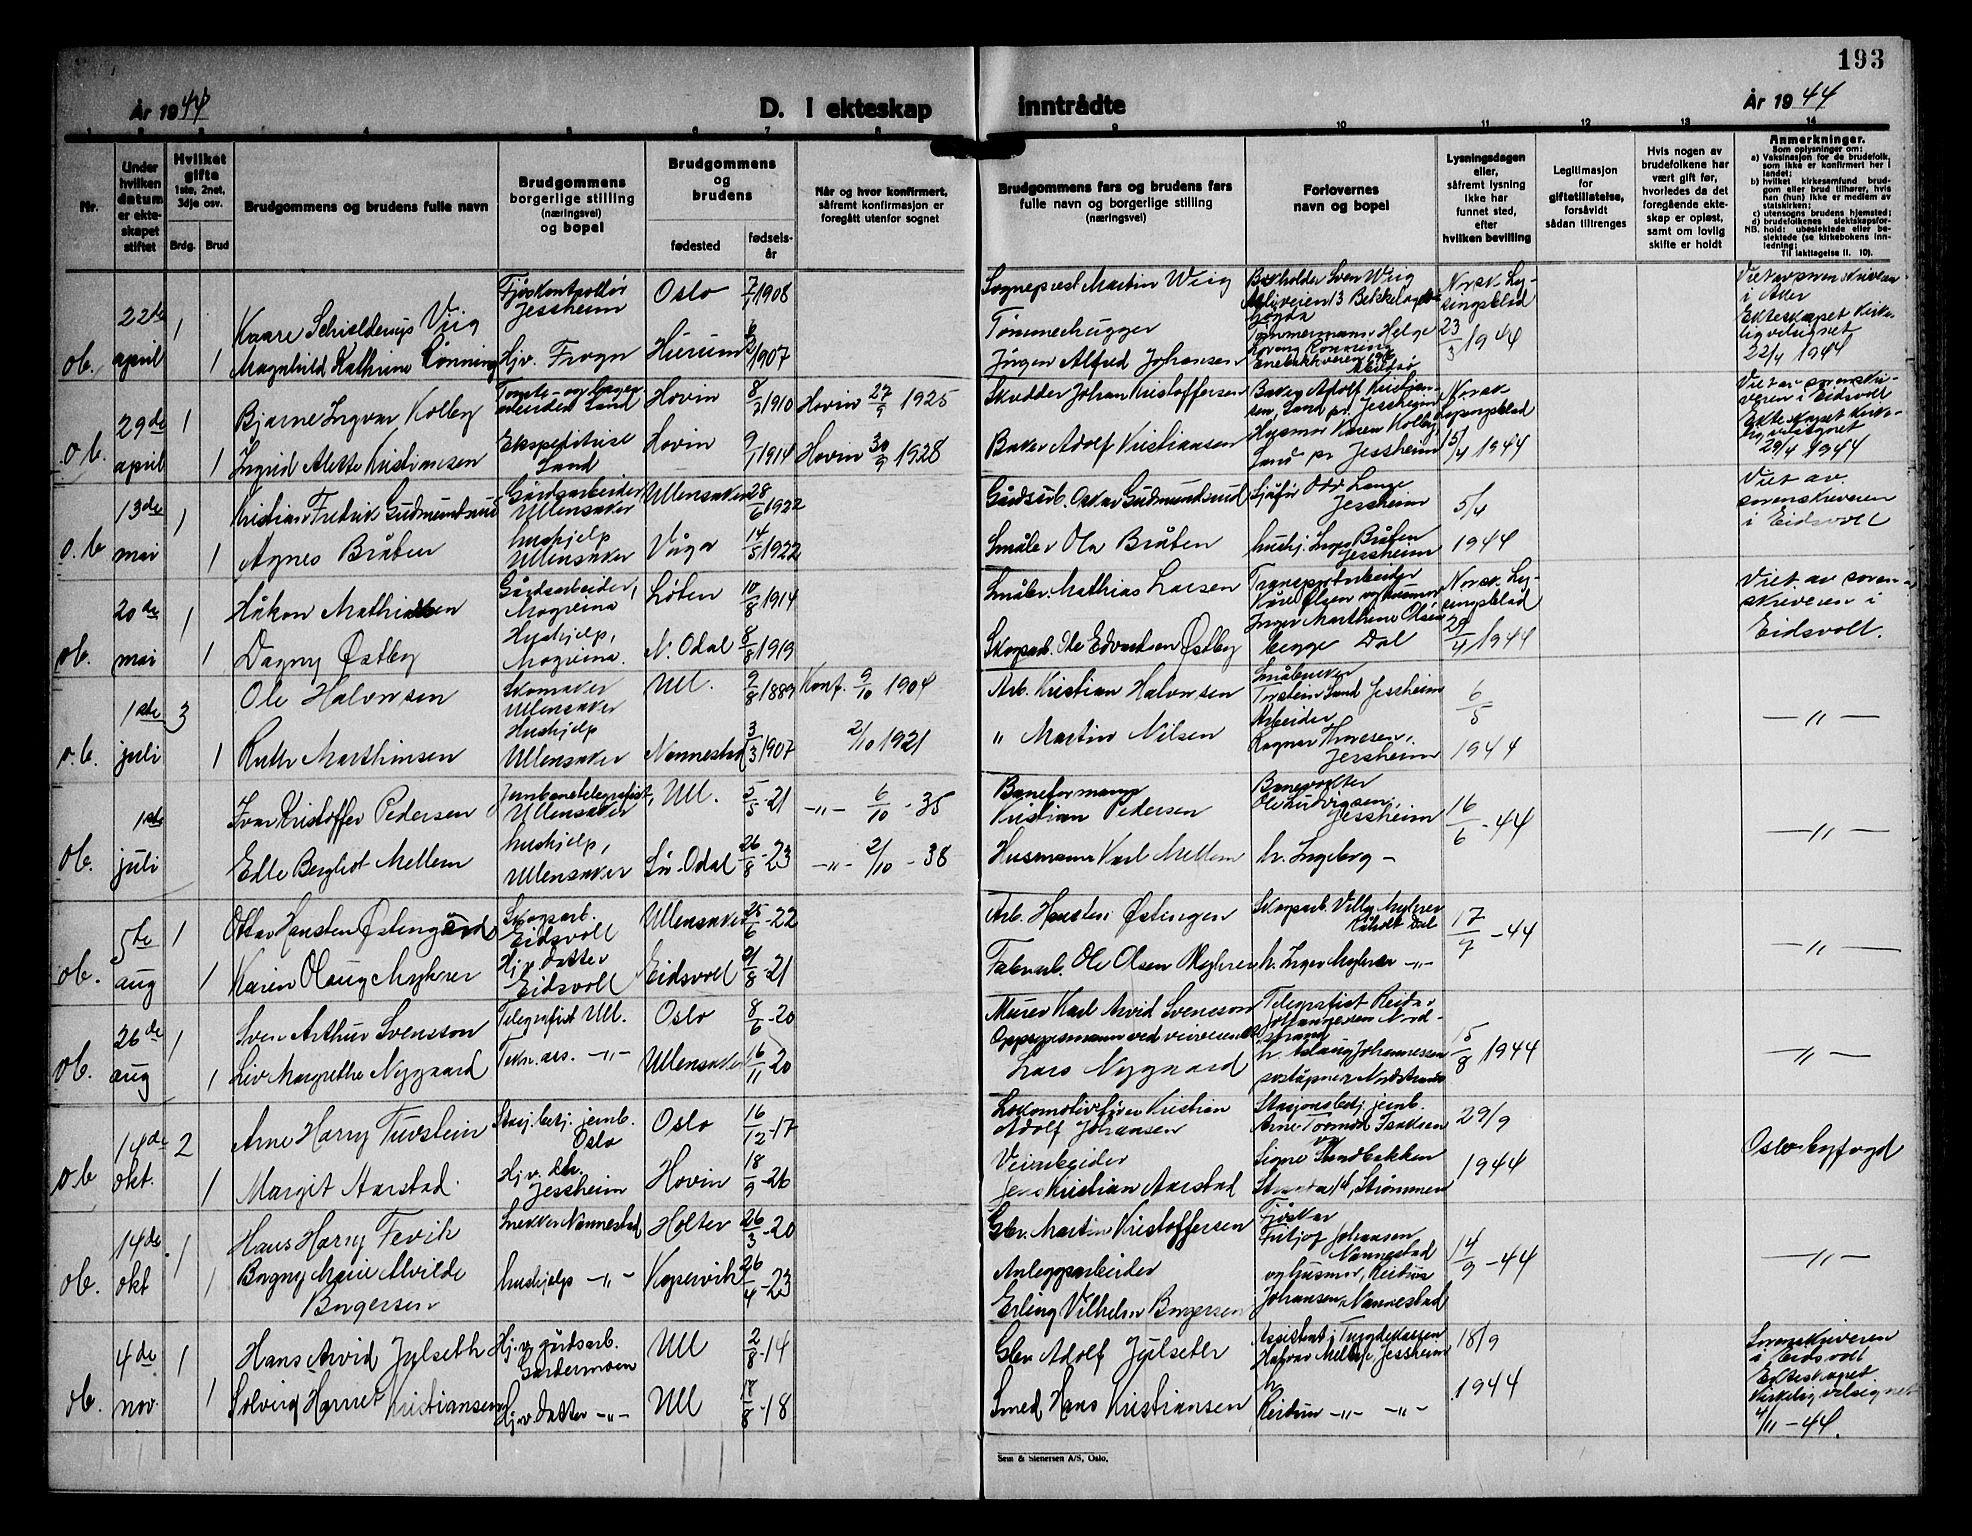 193
År 1944
D. I ekteskap inntrådte
År 1944
1 2 3 4 5 6 7 8 9 10 11 12 13 14
Nr.
Under hvilken datum er ekteskapet stiftet
Hvilket gifte 1ste, 2net, 3dje osv.
Brdg. Brud
Brudgommens og brudens fulle navn
Brudgommens borgerlige stilling (næringsvei) og bopel
Brudgommens og brudens
fødested
fødselsår
Når og hvor konfirmert, såfremt konfirmasjon er foregått utenfor sognet
Brudgommens fars og brudens fars fulle navn og borgerlige stilling (næringsvei)
Forlovernes navn og bopel
Lysningsdagen eller, såfremt lysning ikke har funnet sted, efter hvilken bevilling
Legitimasjon for giftetillatelse, forsåvidt sådan tiltrenges
Hvis nogen av brudefolkene har vært gift før, hvorledes da det foregående ekteskap er opløst, samt om lovlig skifte er holdt
Anmerkninger.
Som oplysninger om:
a) Vaksinasjon for de brudefolk, som ikke er konfirmert her i landet;
b) hvilket kirkesamfund brudgom eller brud tilhører, hvis han (hun) ikke er medlem av statskirken;
c) utensogns brudens hjemsted;
d) brudefolkenes slektskapsforhold: ubeslektede eller beslektede (se kirkebokens innledning;
Til iakttagelse II. 10).
ob. 22de april 1 Kaare Schjelderup Wiig Fjøskontrollør Jessheim Oslo 7/7 1908 Sogneprest Martin Wiig Bokholder Sven Wiig Norsk Lysingsblad 23/3 1944
1 Magnhild Kathrine Rønning Hjv. Frogn Hurum 1907 Tømmerhugger Jørgen Alfred Johansen Tømmermann Helge
Ekteskapet kirkelig velsignet 22/4 1944
o.b. 29de april 1 Bjarne Ingvar Kolby Sand Hovin 8/2 1910 Hovin 27/9 1925 Skredder Johan Kristoffersen Baker Adolf Kristiansen, Sand pr. Jessheim Norsk Lysingsblad 15/4 1944 Viet av sorenskriveren i Eidsvoll
1 Ingrid Alette Kristiansen Ekspeditrise Sand Hovin 9/1 1914 Hovin 30/9 1928 Baker Adolf Kristiansen Husmor Karen Kolby Sand pr. Jessheim Ekteskapet kirkelig velsignet 29/4 1944
o.b 13de mai 1 Kristian Fredrik Gudmundsrud Gårdsarbeider Ullensaker Ullensaker 28/6 1922 Gårdsarb. Oskar Gudmundsrud Sjåfør Odd Lange Jessheim 5/4 1944 Viet av sorenskriveren i Eidsvoll
1 Agnes Bråten hushjelp Ullensaker Våga 14/5 1922 Småbr. Ola Bråten hushj. Inga Bråten Jessheim
ob. 20de mai 1 Håkon Mathiessen Gårdsarbeider, Mogreina Løten 10/8 1914 Småbr. Mathias Larsen Transportarbeider Kåre Olsen og husmor Inger Marthine Olsen begge Dal Norsk Lysingsblad 29/4 1944 Viet av sorenskriveren i Eidsvolt.
1 Dagny Østby Hushjelp, Mogreina. N. Odal 8/8 1919 Skogsarb. Ole Edvardsen Østby
o.b. 1ste juli 3 Ole Halvorsen Skomaker Ullensaker Ull. 9/8 1889 Konf. 9/10 1904 Arb. Kristian Halvorsen Småbruker Torstein Sand Jessheim 6/5 1944 — " —
1 Ruth Marthinsen Hushjelp Ullensaker Nannestad 3/3 1907 2/10 1921 " Martin Nilsen Arbeider Ragnar Thoresen, Jessheim
ob. 1ste juli Ivar Kristoffer Pedersen Jernbanetelegrafist, Ullensaker Ull. 5/5-21 -"- 6/10-35 Baneformann Kristian Pedersen Banevokter Jessheim 16/6-44 — " —
Edle Bergliot Mellem hushjelp, Ullensaker Sør-Odal 26/8-23 -"- 2/10-38 Husmann Karl Mellem h. Ingeborg -
ob. 5te aug 1 Ottar Hansten Østengård Skogsarb. Eidsvoll Ullensaker 25/6-22 Arb. Hansten Østengen Skogsarb. Villy Myhrer Råholt Dal 17/7-44 — " —
1 Karen Olaug Myhrer Hjv. datter Eidsvoll Eidsvoll 21/8-21 Fabrarb. Ole Olsen Myhrer h. Inger Myhrer -"-
ob. 26de aug 1 Sven Arthur Svensson Telegrafist Ull. Oslo 8/6-20 Murer Karl Arvid Svensson Telegrafist Reidar Johannessen Nordstrand 5/8 1944 — " —
1 Liv Margrethe Nygaard -"- Ullensaker 16/11-20 Oppsynsmann ved veivesenet Lars Nygaard h. Aslaug Johannessen
ob 14de okt. 2 Arne Harry Turstein Stasj.betj. jernb. Oslo Oslo 16/12-17 Lokomotivfører Kristian Adolf Johansen Stasjonsbetj. jernb. Arne Tormod Isaksen og 29/9 1944 Oslo byfogd
1 Margit Aarstad. Hjv. dtr. Jessheim Hovin 18/9-26 Veiarbeider Jens Kristian Aarstad Signe Sandbakken Strømmen
ob. 14de okt 1 Hans Harry Fevik Snekker Nannestad Holter 26/3-20 Gbr. Martin Kristoffersen Fritjof Johansen Nannestad 14/9-44 — " —
1 Borgny Marie Alvilde Borgersen hushjelp -"- Kopervik 26/4-23 Anleggsarbeider Erling Vilhelm Borgersen og husmor, Reidun Johansen, Nannestad
ob. 4de nov. 1 Hans Arvid Jylseth Hjv. gårdsarb. Gardermoen Ull 2/8-14 Gbr. Adolf Jylseth Assistent i Trygdekassen Halvor Jessheim 18/9 1944 Sorenskriveren i Eidsvolt
1 Solveig Harriet Kristiansen Hjv. datter -"- Ull 17/8-18 Smed Hans Kristiansen h. Reidun -"- -"- Ekteskapet kirkelig velsignet 4/11-44.
Sem & Stenersen A/S, Oslo.